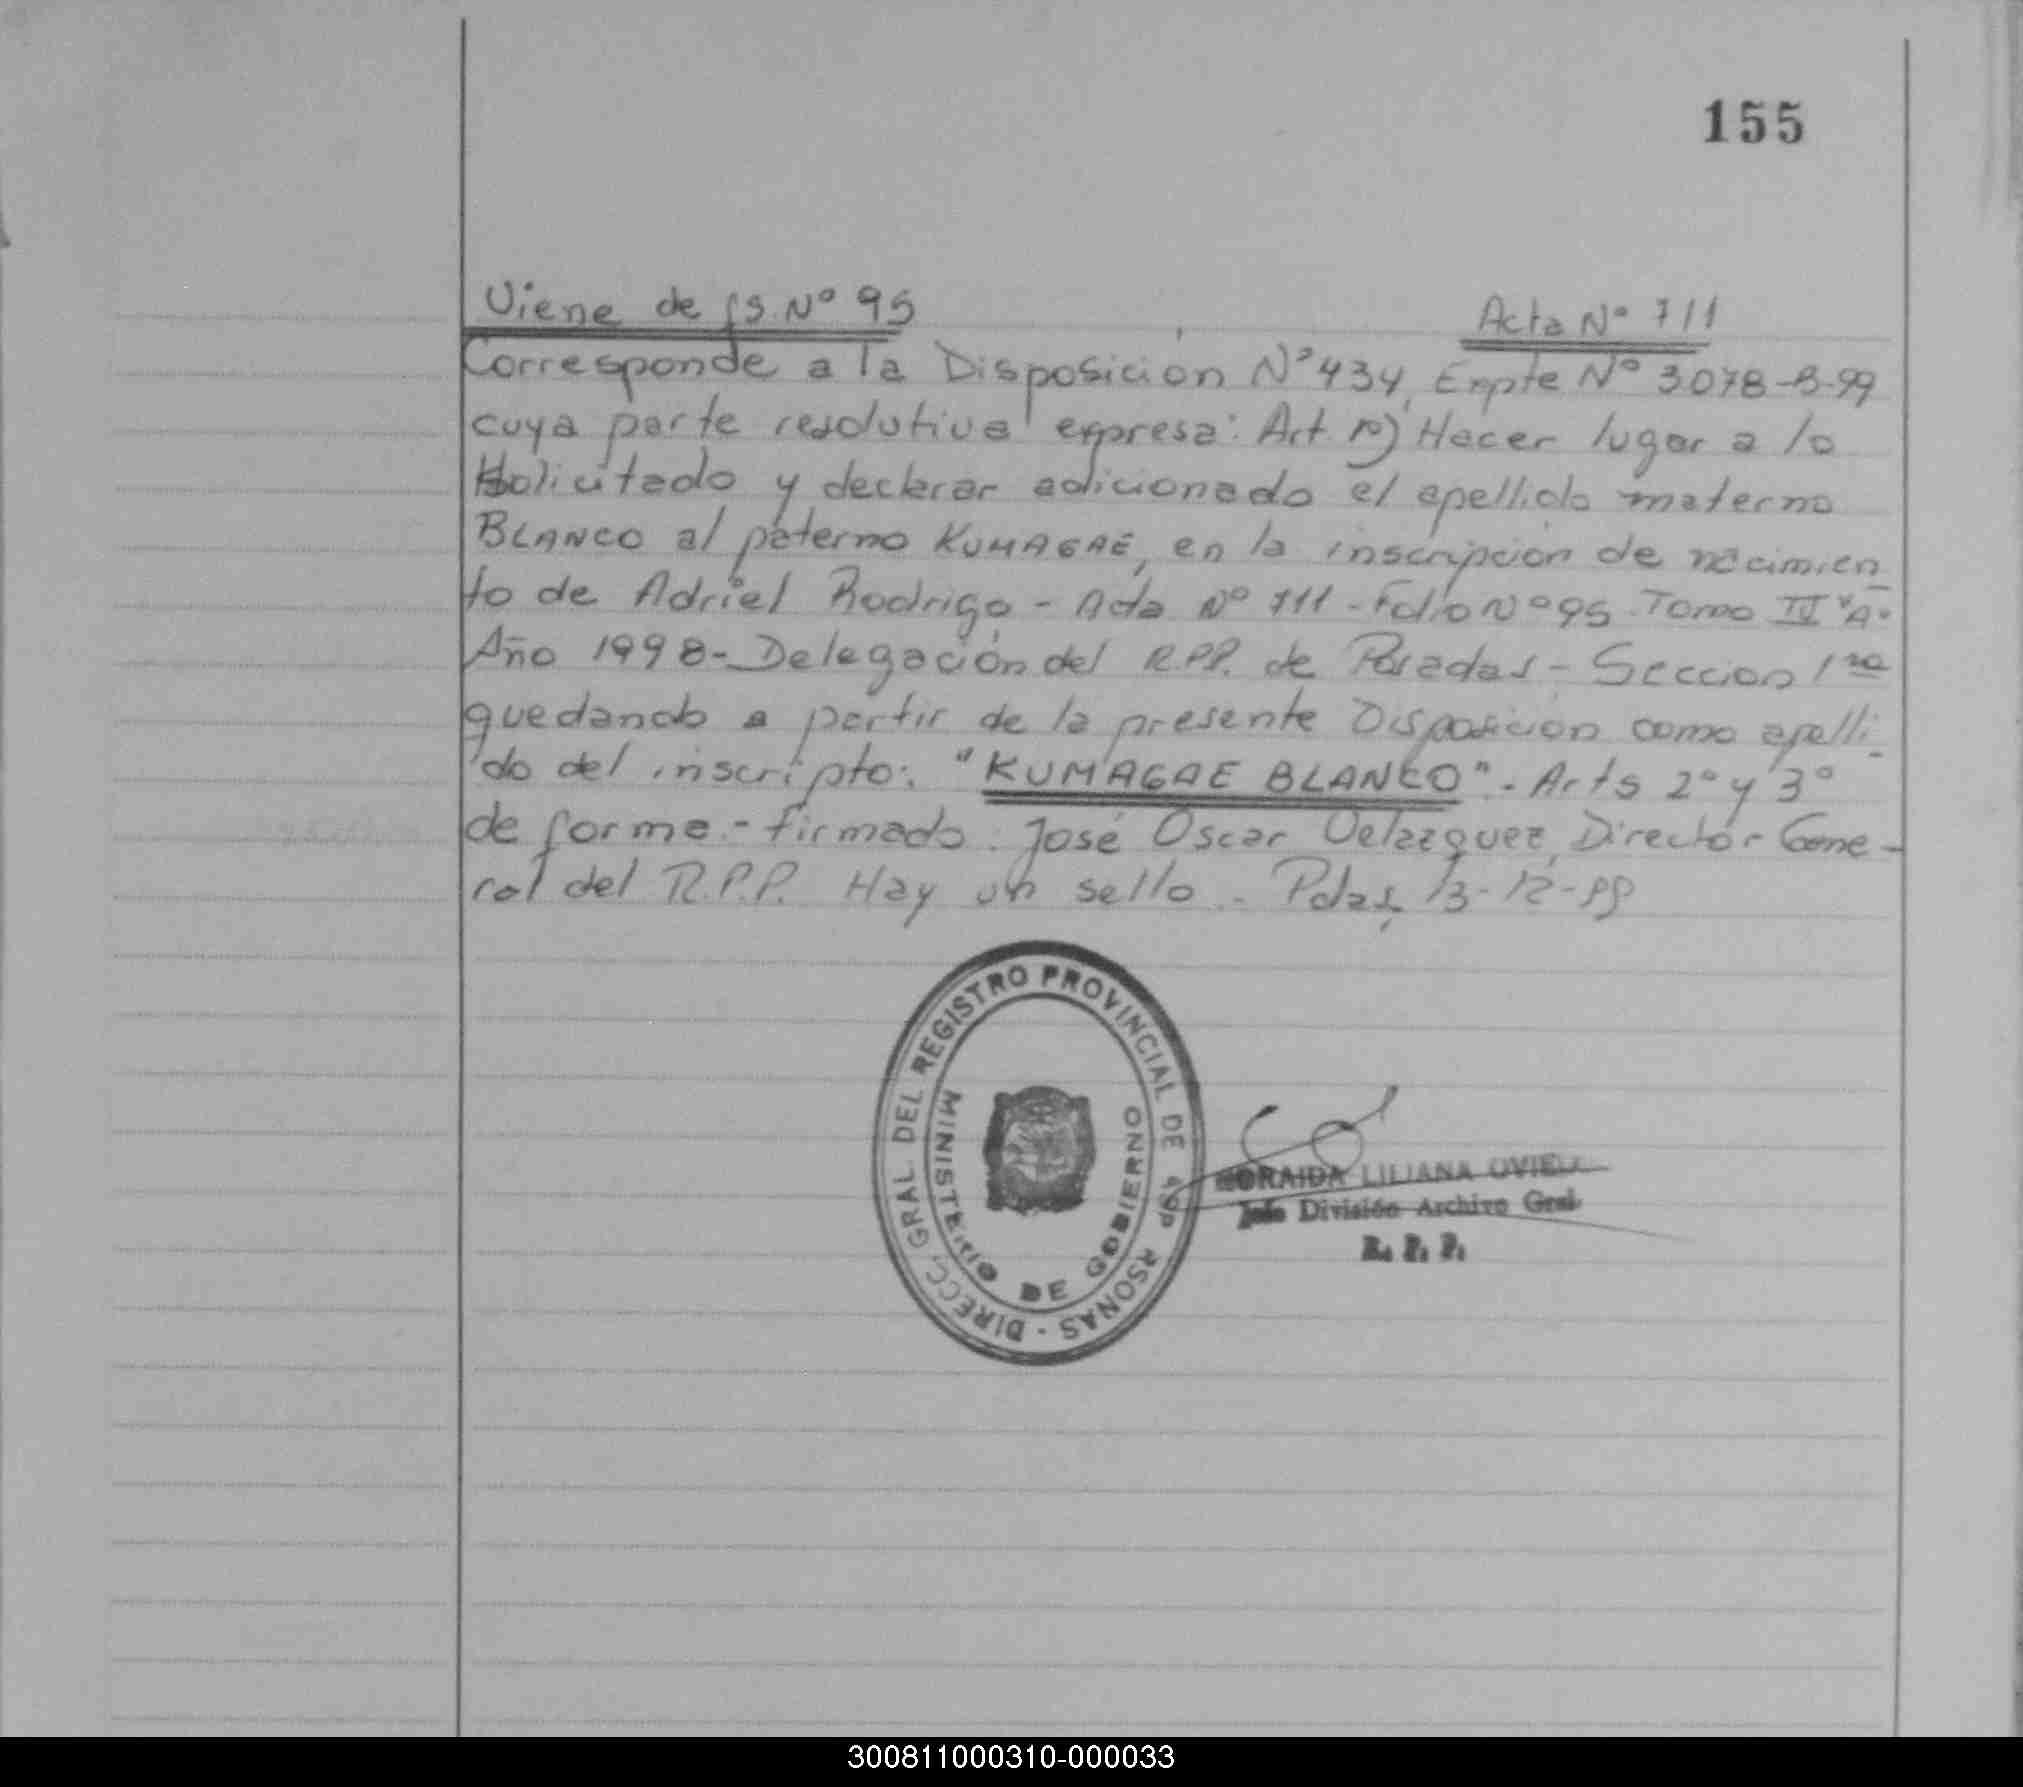 155
Viene de fs. Nº 95
Acta Nº 711
Corresponde a la Disposición Nº 434, Expte Nº 3078-B-99
cuya parte resolutiva expresa: Art. 1º) Hacer lugar a lo
solicitado y declarar adicionado el apellido materno
BLANCO al paterno KUMAGAE, en la inscripción de nacimien
to de Adriel Rodrigo - Acta Nº 711 - Folio Nº 95 - Tomo IV "A"
Año 1998 - Delegación del R.P.P. de Posadas - Seccion 1ra
quedando a partir de la presente Disposición como apelli-
do del inscripto: "KUMAGAE BLANCO". - Arts 2º y 3º
de forma. - firmado: José Oscar Velazquez, Director Gene-
ral del R.P.P. Hay un sello. - Pdas, 13-12-99
DIRECC. GRAL. DEL REGISTRO PROVINCIAL DE RSONAS -
MINISTERIO DE GOBIERNO
LILIANA
Jefe División Archivo Gral
R. P. P.
300811000310-000033